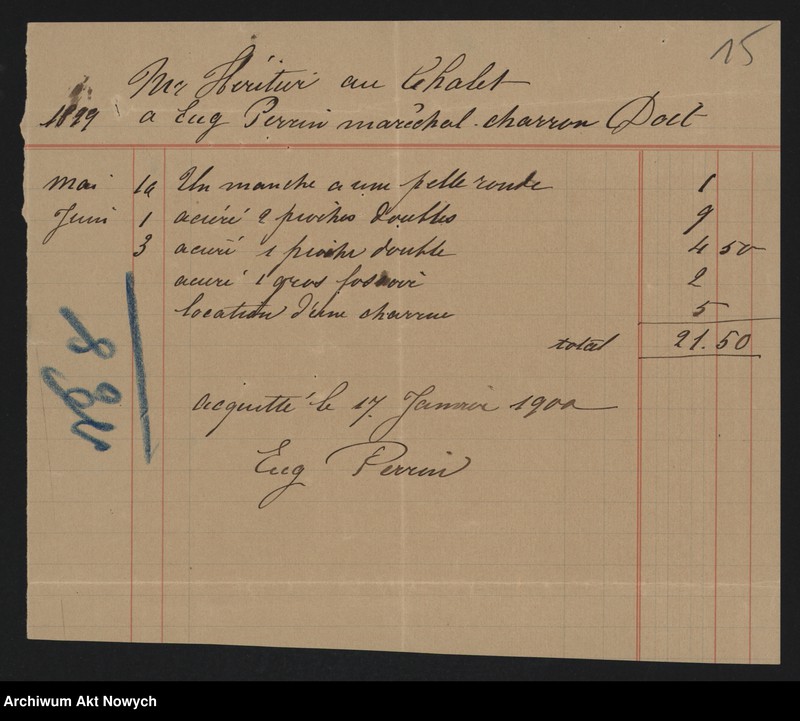 15
Mr Héritier au Chalet
1899 a Eug Perrin maréchal-charron Doit
Mai 10 Un manche a une pelle ronde 1
Juin 1 aciéré 2 pioches doubles 9
3 aciéré 1 pioche double 4 50
aciéré 1 gros fossoir 2
location d'une charrue 5
total 21.50
acquitté le 17 Janvier 1900
Eug Perrin
No 8
Archiwum Akt Nowych